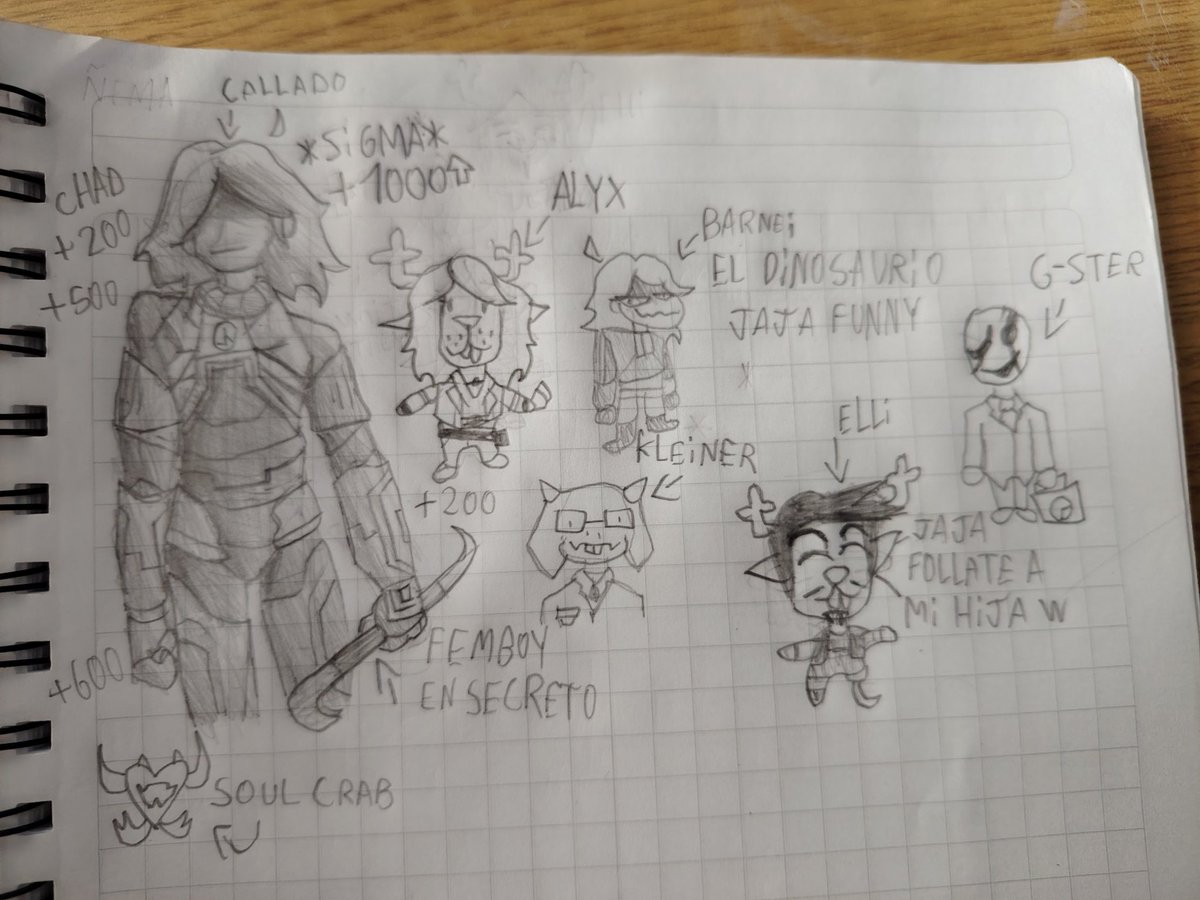 ÑEMA
CALLADO
*SiGMA*
+1000
CHAD
+200
+500
ALYX
BARNEi
EL DiNOSAURiO
JAJA FUNNY
G-STER
ELLi
KLEiNER
+200
JAJA
FOLLATE A
Mi HiJA W
FEMBOY
EN SECRETO
+600
SOUL CRAB